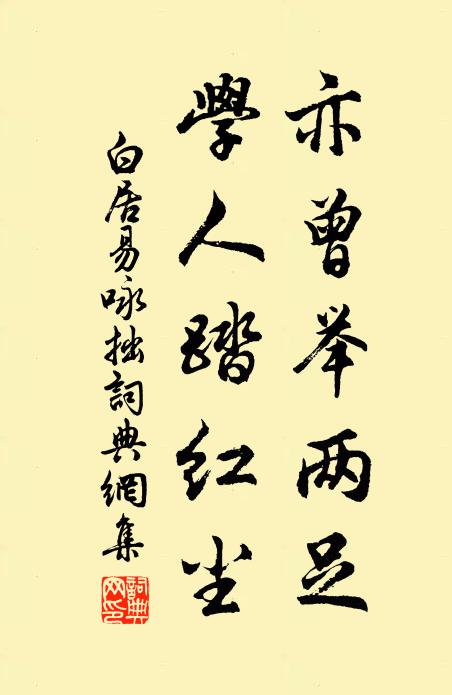 亦曾举两足
學人踏红尘
白居易咏拙詞典網集
詞典網印